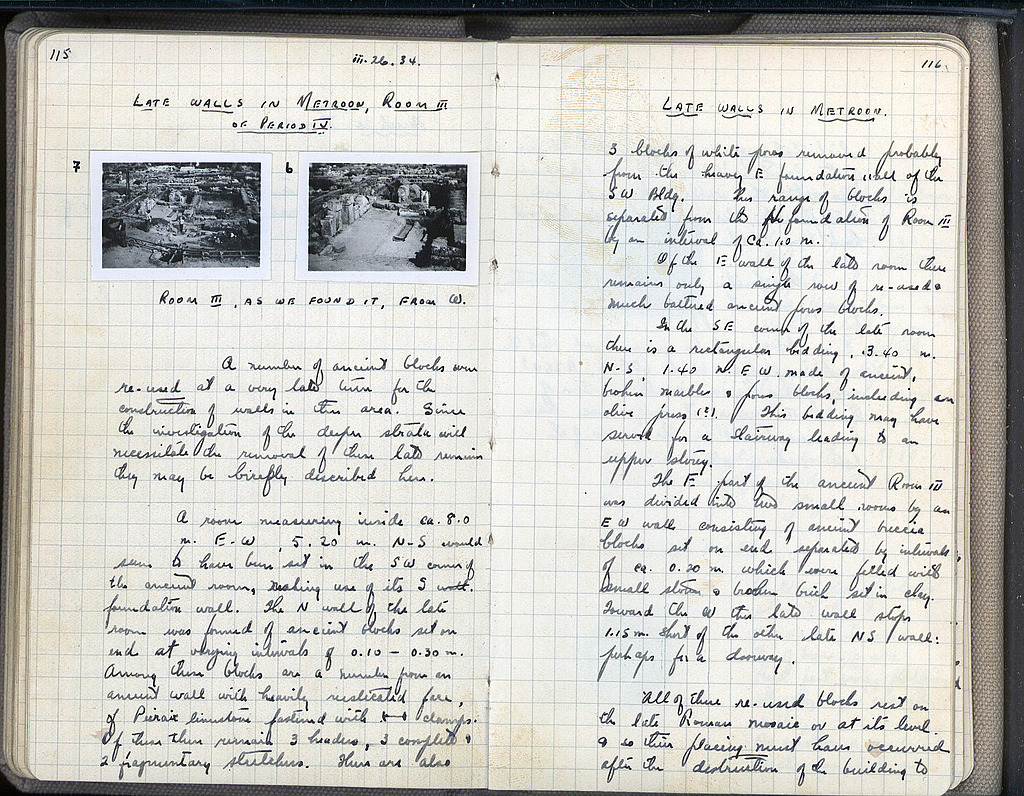 115
iii-26.34.
LATE WALLS IN METROON, ROOM III
OF PERIOD IV.
7
6
ROOM III, AS WE FOUND IT, FROM W.
A number of ancient blocks were
re-used at a very late time for the
construction of walls in this area. Since
the investigation of the deeper strata will
necessitate the removal of these late remains
they may be briefly described here.
A room measuring inside ca. 8.0
m. E-W, 5.20 m. N-S would
seem to have been set in the SW corner of
the ancient room, making use of its S
foundation wall. The N wall of the late
room was formed of ancient blocks set on
end at varying intervals of 0.10 - 0.30 m.
Among these blocks are a number from an
ancient wall with heavily rusticated face,
of Piraic limestone fastened with clamps.
Of these there remain 3 headers, 3 complete &
2 fragmentary stretchers. There are also
116
LATE WALLS IN METROON.
3 blocks of white poros removed probably
from the heavy E foundation wall of the
SW Bldg. This range of blocks is
separated from the foundation of Room III
by an interval of ca. 1.0 m.
Of the E wall of the late room there
remains only a single row of re-used &
much battered ancient poros blocks.
In the SE corner of the late room
there is a rectangular bedding, 3.40 m.
N-S, 1.40 m. E W. made of ancient,
broken marbles & poros blocks, including an
olive press (?). This bedding may have
served for a stairway leading to an
upper storey.
The E part of the ancient Room III
was divided into two small rooms by an
E W wall consisting of ancient breccia
blocks set on end separated by intervals
of ca. 0.20 m which were filled with
small stones & broken brick set in clay.
Toward the W this late wall stops
1.15 m. short of the other late NS wall:
perhaps for a doorway.
All of these re-used blocks rest on
the late Roman mosaic or at its level
& so their placing must have occurred
after the destruction of the building to